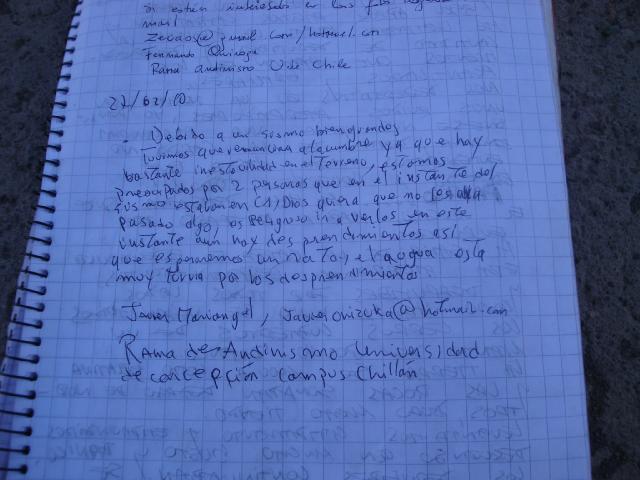 Si están interesados en las fotos
mail
Zecaos@gmail.com/hotmail.com
Fernando Quiroga
Rama andinismo U. de Chile
27/02/10
- Debido a un sismo bien grandes
tuvimos que renunciar a la cumbre ya que hay
bastante inestavilidad en el terreno, estamos
preocupados por 2 personas que en el instante del
sismo estaban en C1, Dios quiera que no les aya
pasado algo, es peligroso ir a verlos en este
instante aun hay desprendimientos así
que esperaremos un rato, el agua esta
muy turvia por los desprendimientos
Javier Mariangel, Javierorizuka@hotmail.com
Rama de Andinismo Universidad
de concepción campus Chillán